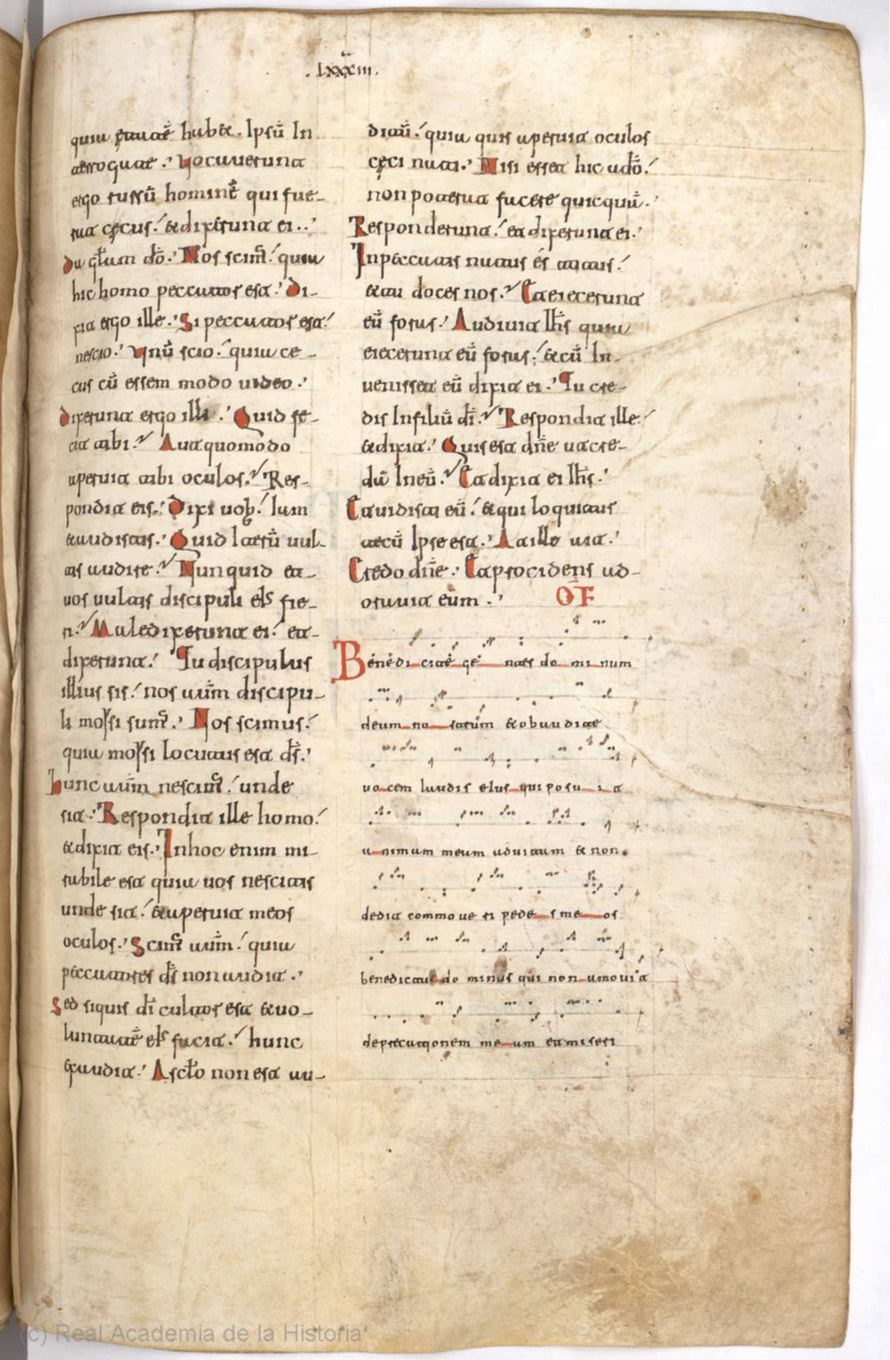 .lxxxiii.
quia etatē habet. Ipsū In
terrogate. Vocaverunt
ergo rursū hominē qui fue-
rat cęcus. & dixerunt ei.
Da gl̄am dō. Nos scim̄ quia
hic homo peccator est. Di-
xit ergo ille. Si peccator est.
nescio. unū scio. quia ce-
cus cū essem modo video.
Dixerunt ergo illi. Quid fe-
cit tibi. Aut quomodo
aperuit tibi oculos. Res-
pondit eis. Dixi vob. Iam
& audistis. Quid iterū vul-
tis audire. Nunquid et
vos vultis discipuli eIs fie-
ri. Maledixerunt ei. et
dixerunt. Tu discipulus
illius sis. nos aūm discipu-
li moysi sum̄. Nos scimus.
quia moysi locutus est d̄s.
hunc aūm nescim̄. unde
sit. Respondit ille homo.
& dixit eis. In hoc enim mi-
rabile est quia vos nescitis
unde sit. & aperuit meos
oculos. Scim̄ aūm. quia
peccatores d̄s non audit.
Sed siquis dī cultor est & vo-
luntatē eIs facit. hunc
exaudit. A sc̄lo non est au-
ditū. quia quis aperuit oculos
cęci nati. Nisi esset hic a dō.
non poterat facere quicquā.
Responderunt. et dixerunt ei.
In peccatis natus és totus.
& tu doces nos. Et eiecerunt
eū foras. Audivit Ih̄s quia
eiecerunt eū foras. & cū In-
venisset eū dixit ei. Tu cre-
dis In filiū dī. Respondit ille.
& dixit. Quis est dn̄e ut cre-
dā In eū. Et dixit ei Ih̄s.
Et vidisti eū. & qui loquitur
tecū Ipse est. At ille ait.
Credo dn̄e. Et procidens ad-
oravit eum. OF
Benedicite gentes dominum
deum nostrum & obaudite
vocem laudis eius qui posuit
animum meum ad vitam & non
dedit commoveri pedes meos
benedictus dominus qui non amovit
deprecationem meam et miseri
(c) Real Academia de la Historia